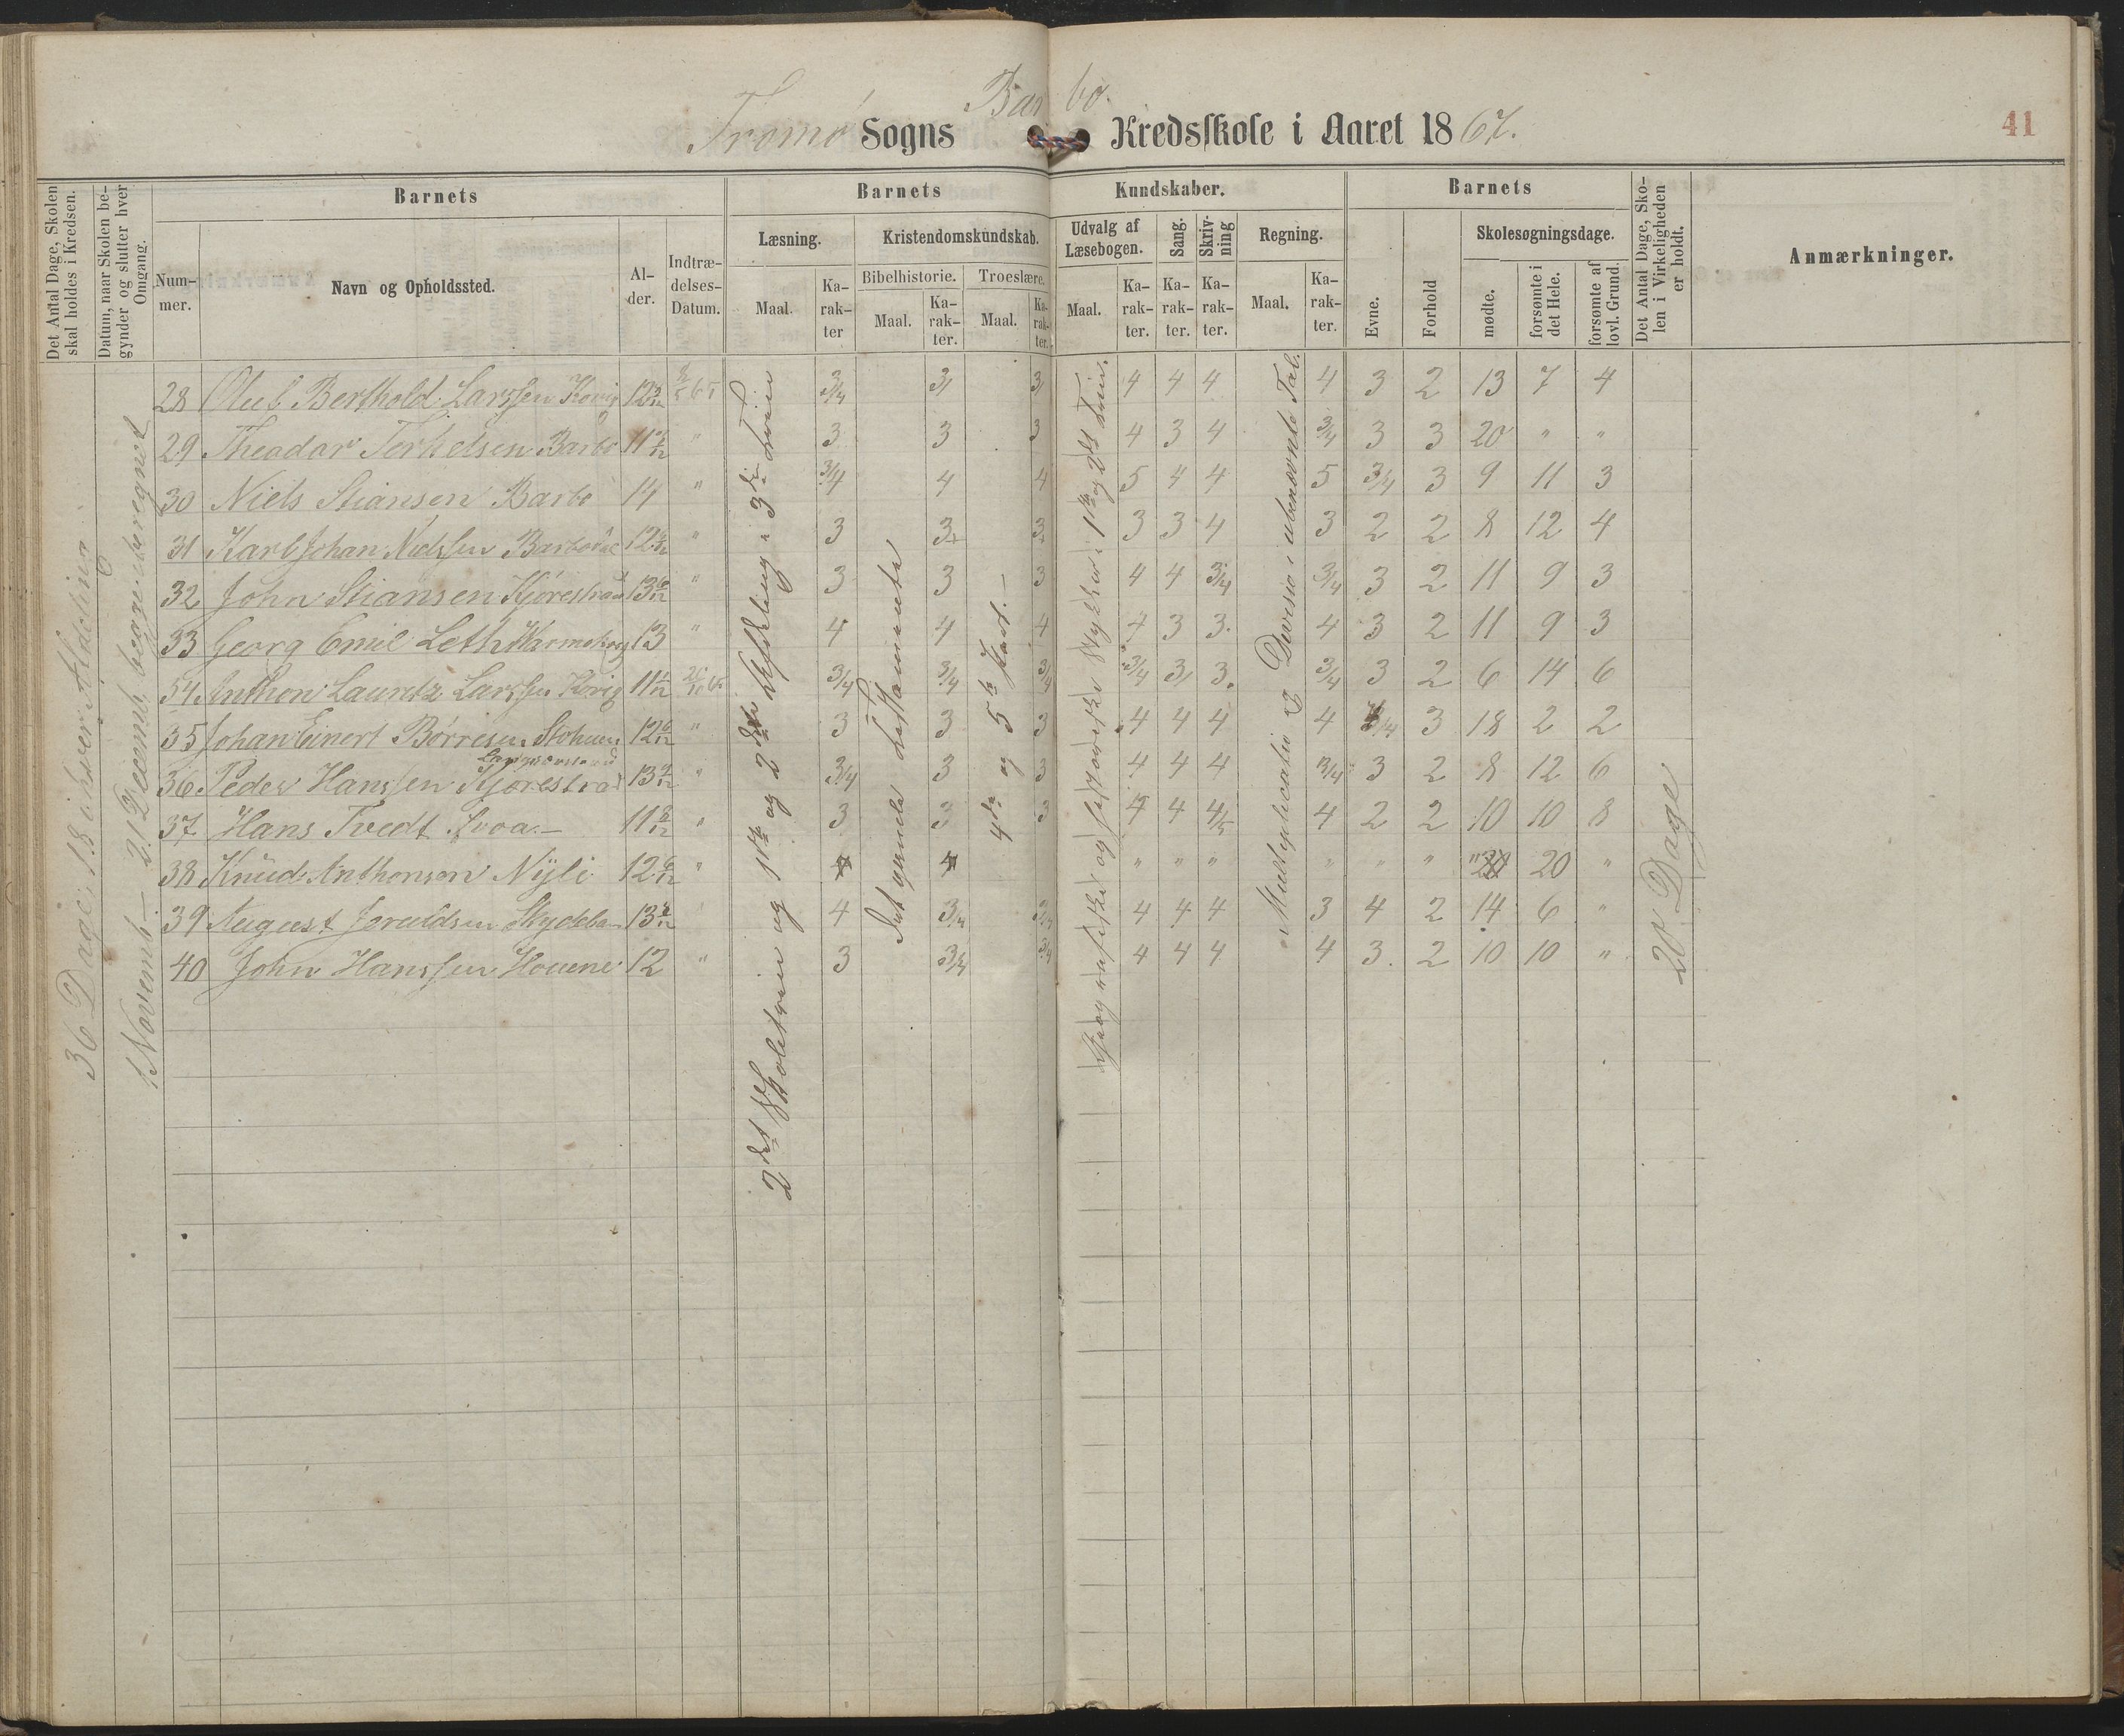 Tromø Sogns Barbo Kredsskole i Aaret 1867.
41
Det Antal Dage, Skolen skal holdes i Kredsen.
Datum, naar Skolen begynder og slutter hver Omgang.
Barnets
Barnets Kundskaber.
Barnets
Det Antal Dage, Skolen i Virkeligheden er holdt.
Anmærkninger.
Nummer.
Navn og Opholdssted.
Alder.
Indtrædelses-Datum.
Læsning.
Kristendomskundskab.
Udvalg af Læsebogen.
Sang.
Skrivning
Regning.
Evne.
Forhold
Skolesøgningsdage.
Bibelhistorie.
Troeslære.
Maal.
Karakter
Maal.
Karakter.
Maal.
Karakter.
Maal.
Karakter.
Karakter.
Karakter.
Maal.
Karakter.
mødte.
forsømte i det Hele.
forsømte af lovl. Grund.
36 Dage, 18 i hver Afdeling
1 Novemb. – 21 Decemb. begge iberegnet
2det Skoletrin og 1ste og 2den Afdeling i 3die Trin
Det gamle Testamente
4de og 5te Part.
Geografiske og historiske Stykker i 1ste og 2det Trin.
Multiplicatio & Divisio i ubenævnte Tal.
20 Dage
28 Oluf Bertholdt Larssen 3/4 3 3 4 4 4 4 3 2 13 7 4
29 Theodor Terkelsen Barbo " 3 3 3 4 3 4 3/4 3 3 20 " "
30 Niels Stiansen Barbo 14 " 3/4 4 4 5 4 4 5 3/4 3 9 11 3
31 Karl Johan Nielssen " 3 3 3 3 3 4 3 2 2 8 12 4
32 John Stiansen Kjørestrad " 3 3 3 4 4 3/4 3/4 3 2 11 9 3
33 Georg Emil Leth 13 " 4 4 4 4 3 3. 4 3 2 11 9 3
34 Anthon Lauritz Larssen 3/4 3/4 3/4 3/4 3 3. 3/4 3 2 6 14 6
35 Johan Einert Børresen " 3 3 3 4 4 4 4 3/4 3 18 2 2
36 Peder Hanssen Kjørestrad " 3/4 3 3 4 4 4 3/4 3 2 8 12 6
37 Hans Tvedt " 3 3 3 4 4 4/5 4 2 2 10 10 8
38 Knud Anthonsen Nyli " " " " " " " 20 "
39 August " 4 3/4 3/4 4 4 4 3 4 2 14 6 "
40 John Hanssen Houene 12 " 3 3/4 3/4 4 4 4 4 3. 2 10 10 "